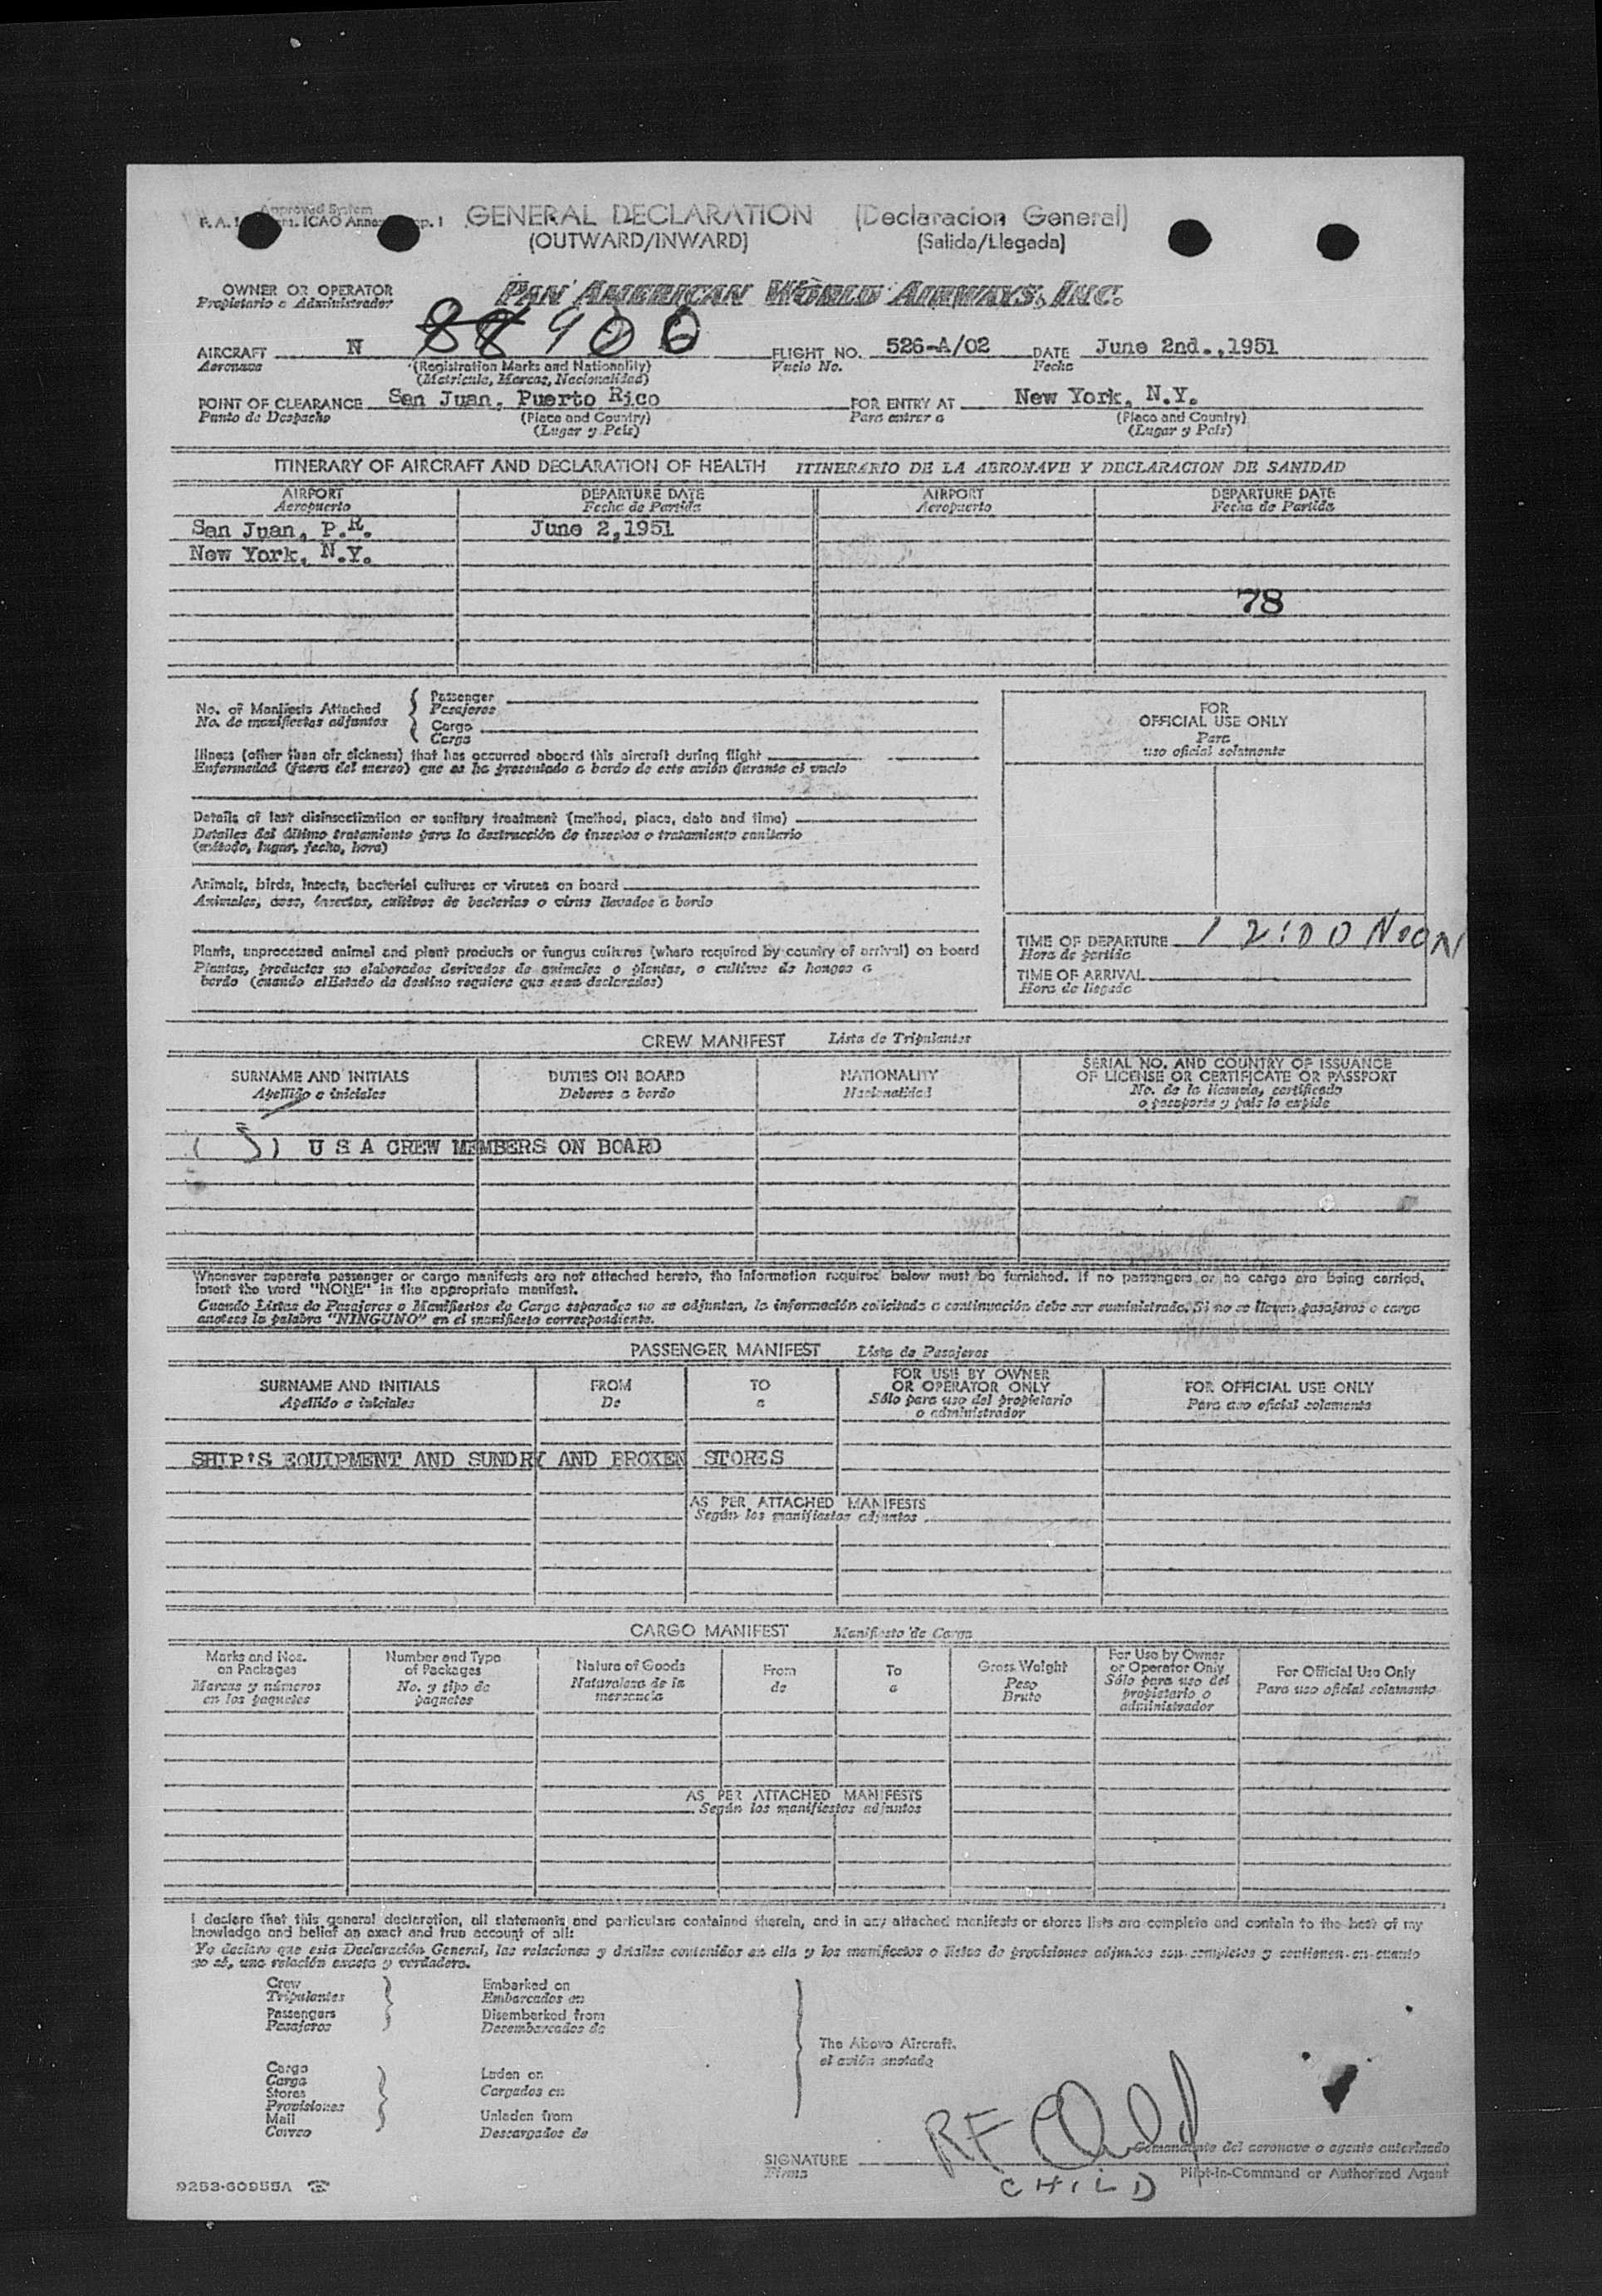 Approved System
GENERAL DECLARATION (Declaracion General)
(OUTWARD/INWARD) (Salida/Llegada)
OWNER OR OPERATOR PAN AMERICAN WORLD AIRWAYS, INC.
Propietario o Administrador
AIRCRAFT N 88900 FLIGHT NO. 526-A/02 DATE June 2nd.,1951
Aeronave (Registration Marks and Nationality) Vuelo No. Fecha
(Matricula, Marcas, Nacionalidad)
POINT OF CLEARANCE San Juan, Puerto Rico FOR ENTRY AT New York, N.Y.
Punto de Despacho (Place and Country) Para entrar a (Place and Country)
(Lugar y País) (Lugar y País)
ITINERARY OF AIRCRAFT AND DECLARATION OF HEALTH ITINERARIO DE LA AERONAVE Y DECLARACION DE SANIDAD
AIRPORT DEPARTURE DATE AIRPORT DEPARTURE DATE
Aeropuerto Fecha de Partida Aeropuerto Fecha de Partida
San Juan, P.R. June 2,1951
New York, N.Y.
78
No. of Manifests Attached
No. de manifiestos adjuntos
Passenger
Pasajeros
Cargo
Carga
Illness (other than air sickness) that has occurred aboard this aircraft during flight
Enfermedad (fuera del mareo) que se ha presentado a bordo de este avión durante el vuelo
Details of last disinsectization or sanitary treatment (method, place, date and time)
Detalles del último tratamiento para la destrucción de insectos o tratamiento sanitario
(método, lugar, fecha, hora)
Animals, birds, insects, bacterial cultures or viruses on board
Animales, aves, insectos, cultivos de bacterias o virus llevados a bordo
Plants, unprocessed animal and plant products or fungus cultures (where required by country of arrival) on board
Plantas, productos no elaborados derivados de animales o plantas, o cultivos de hongos a
bordo (cuando el Estado de destino requiere que sean declarados)
FOR
OFFICIAL USE ONLY
Para
uso oficial solamente
TIME OF DEPARTURE 12:00 NOON
Hora de partida
TIME OF ARRIVAL
Hora de llegada
CREW MANIFEST Lista de Tripulantes
SURNAME AND INITIALS DUTIES ON BOARD NATIONALITY SERIAL NO. AND COUNTRY OF ISSUANCE
OF LICENSE OR CERTIFICATE OR PASSPORT
Apellido e iniciales Deberes a bordo Nacionalidad No. de la licencia, certificado
o pasaporte y país lo expide
( 5 ) U S A CREW MEMBERS ON BOARD
Whenever separate passenger or cargo manifests are not attached hereto, the information required below must be furnished. If no passengers or no cargo are being carried,
insert the word "NONE" in the appropriate manifest.
Cuando Listas de Pasajeros o Manifiestos de Carga separados no se adjuntan, la información solicitada a continuación debe ser suministrada. Si no se llevan pasajeros o carga
anótese la palabra "NINGUNO" en el manifiesto correspondiente.
PASSENGER MANIFEST Lista de Pasajeros
SURNAME AND INITIALS FROM TO FOR USE BY OWNER
OR OPERATOR ONLY FOR OFFICIAL USE ONLY
Apellido e iniciales De a Sólo para uso del propietario
o administrador Para uso oficial solamente
SHIP'S EQUIPMENT AND SUNDRY AND BROKEN STORES
AS PER ATTACHED MANIFESTS
Según los manifiestos adjuntos
CARGO MANIFEST Manifiesto de Carga
Marks and Nos.
on Packages
Marcas y números
en los paquetes
Number and Type
of Packages
No. y tipo de
paquetes
Nature of Goods
Naturaleza de la
mercancía
From
de
To
a
Gross Weight
Peso
Bruto
For Use by Owner
or Operator Only
Sólo para uso del
propietario o
administrador
For Official Use Only
Para uso oficial solamente
AS PER ATTACHED MANIFESTS
Según los manifiestos adjuntos
I declare that this general declaration, all statements and particulars contained therein, and in any attached manifests or stores lists are complete and contain to the best of my
knowledge and belief an exact and true account of all:
Yo declaro que esta Declaración General, las relaciones y detalles contenidos en ella y los manifiestos o listas de provisiones adjuntos son completos y contienen en cuanto
yo sé, una relación exacta y verdadera.
Crew Embarked on
Tripulantes Embarcados en
Passengers Disembarked from
Pasajeros Desembarcados de
The Above Aircraft.
el avión anotado
Cargo Laden on
Carga Cargados en
Stores
Provisiones
Mail Unladen from
Correo Descargados de
SIGNATURE RF Child
Firma
Comandante del aeronave o agente autorizado
CHILD
Pilot-in-Command or Authorized Agent
9253-60955A